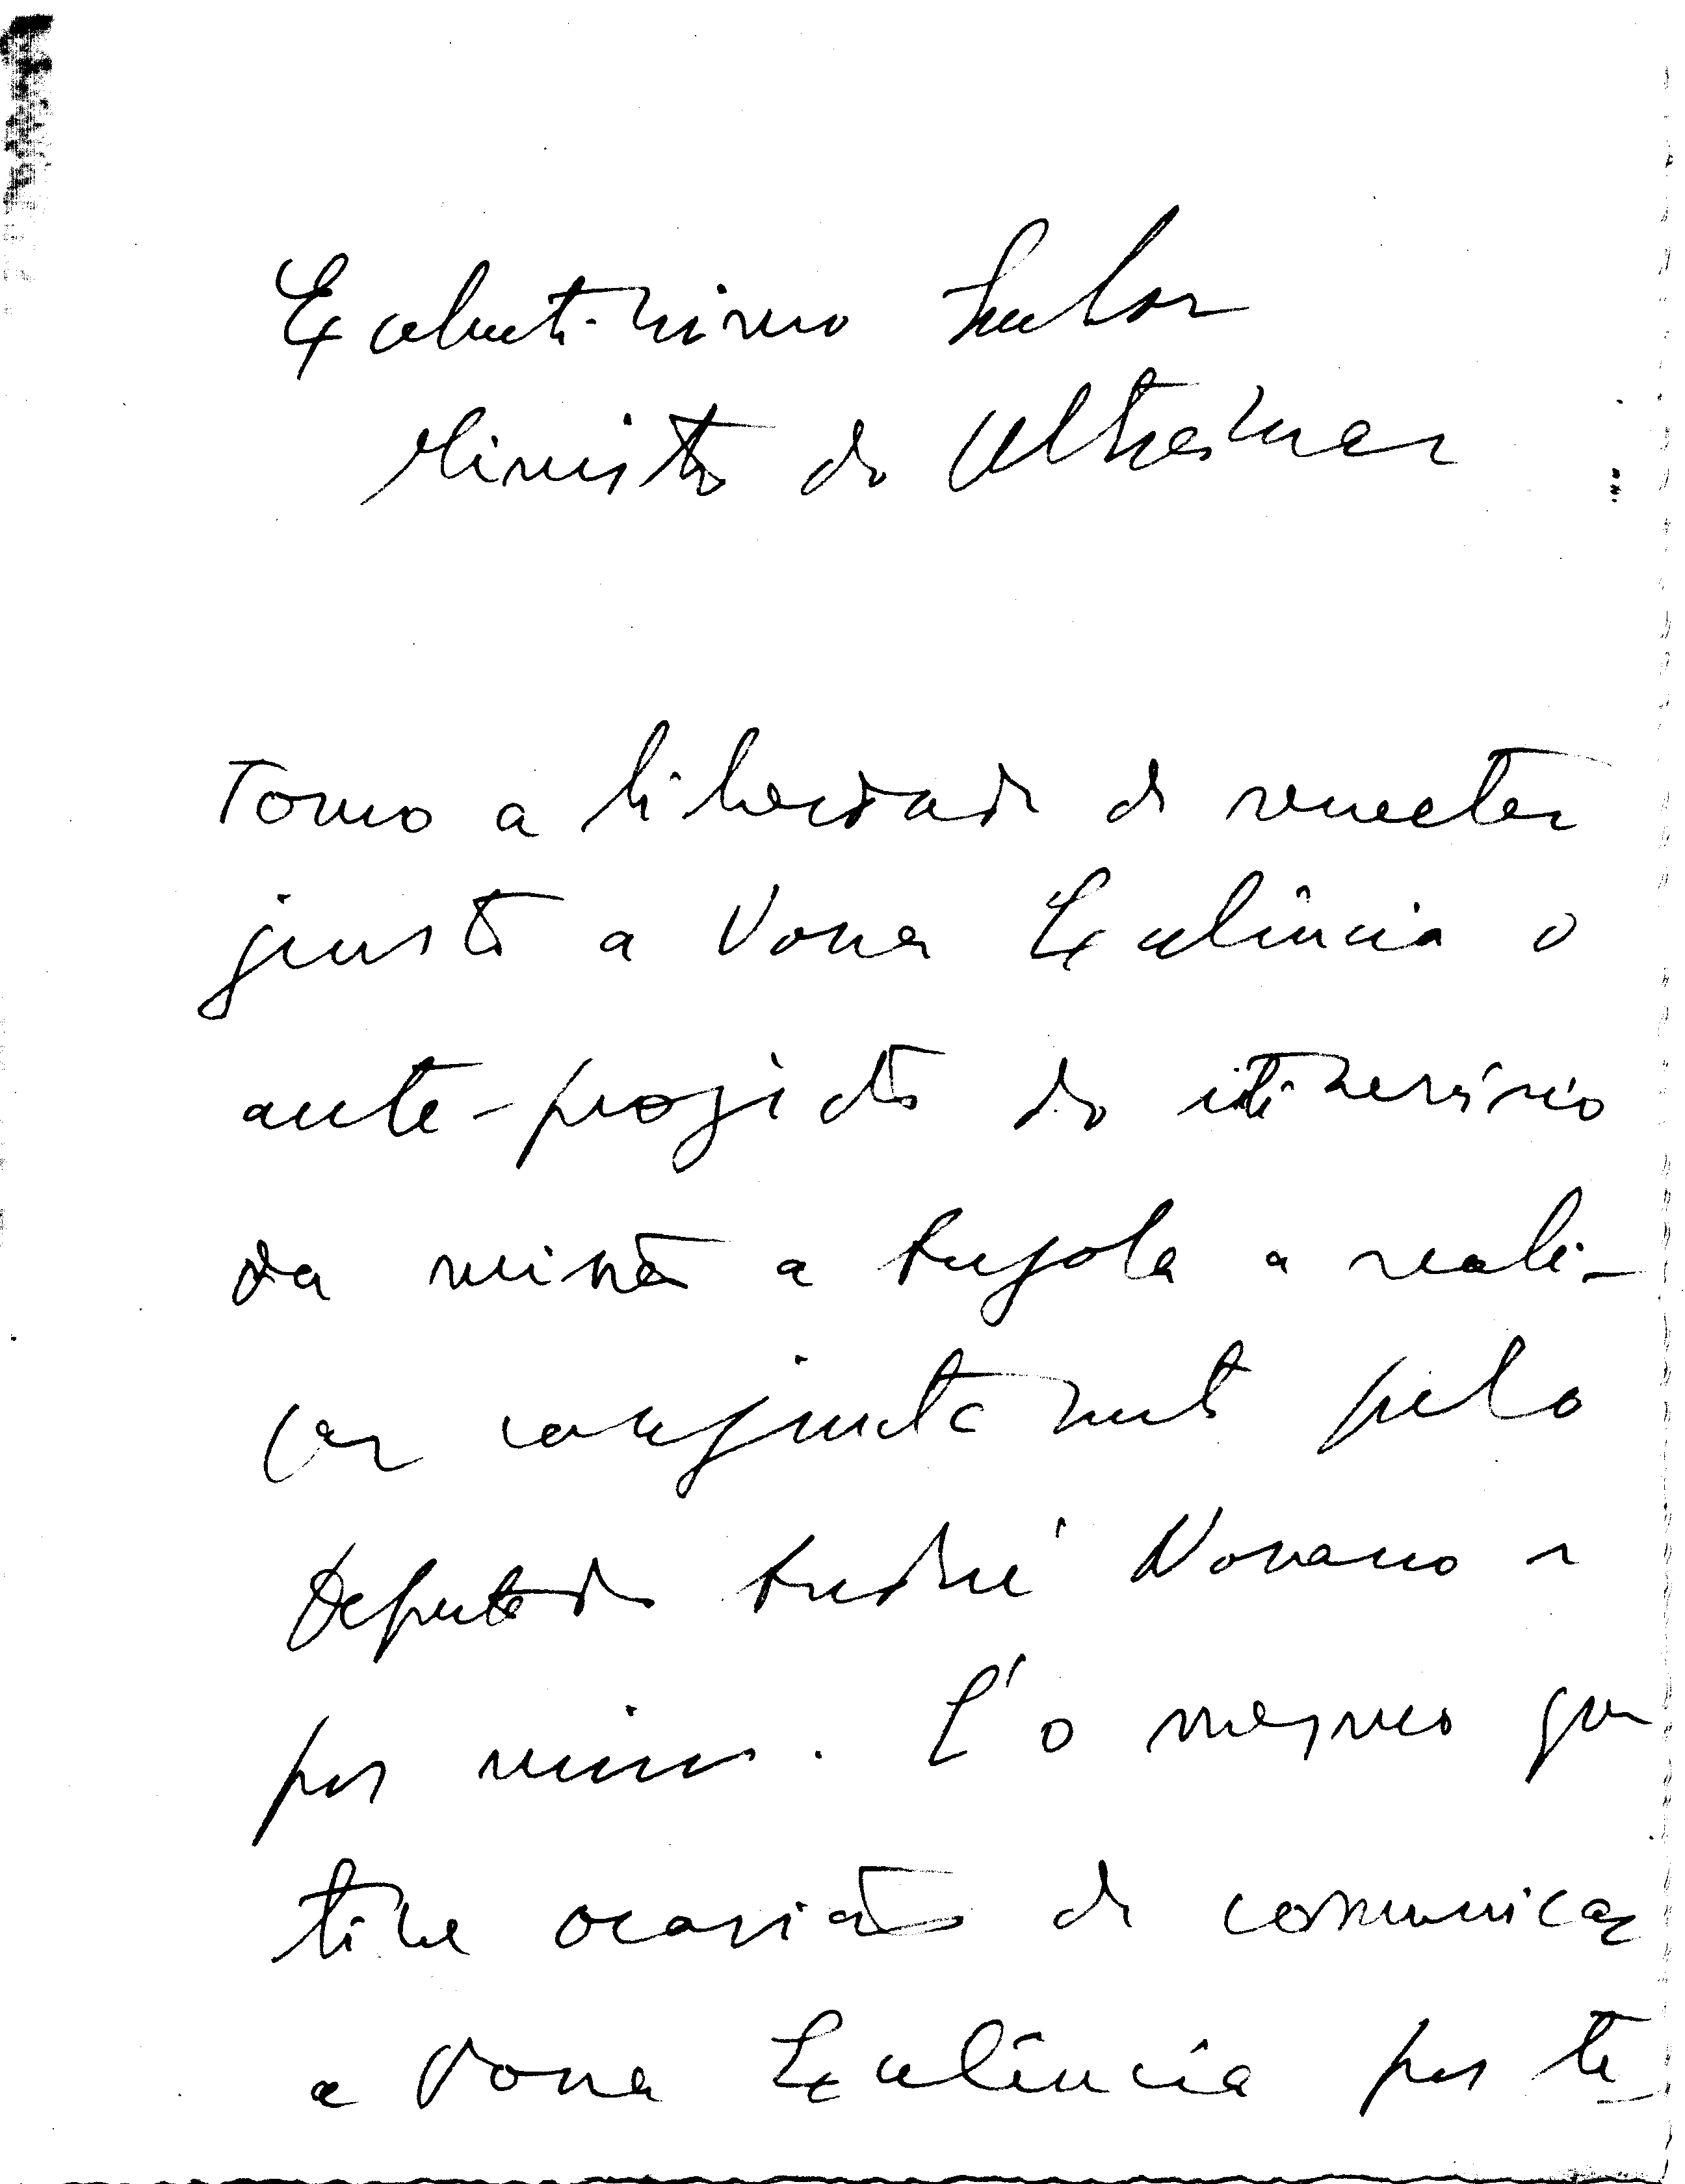 Excelentíssimo Senhor
Ministro do Ultramar
Tomo a liberdade de remeter
junto a Vossa Excelência o
ante-projecto do itinerário
da visita a Angola a reali-
zar conjuntamente pelo
Deputado André Navarro e
por mim. É o mesmo que
tive ocasião de comunicar
a Vossa Excelência por te-